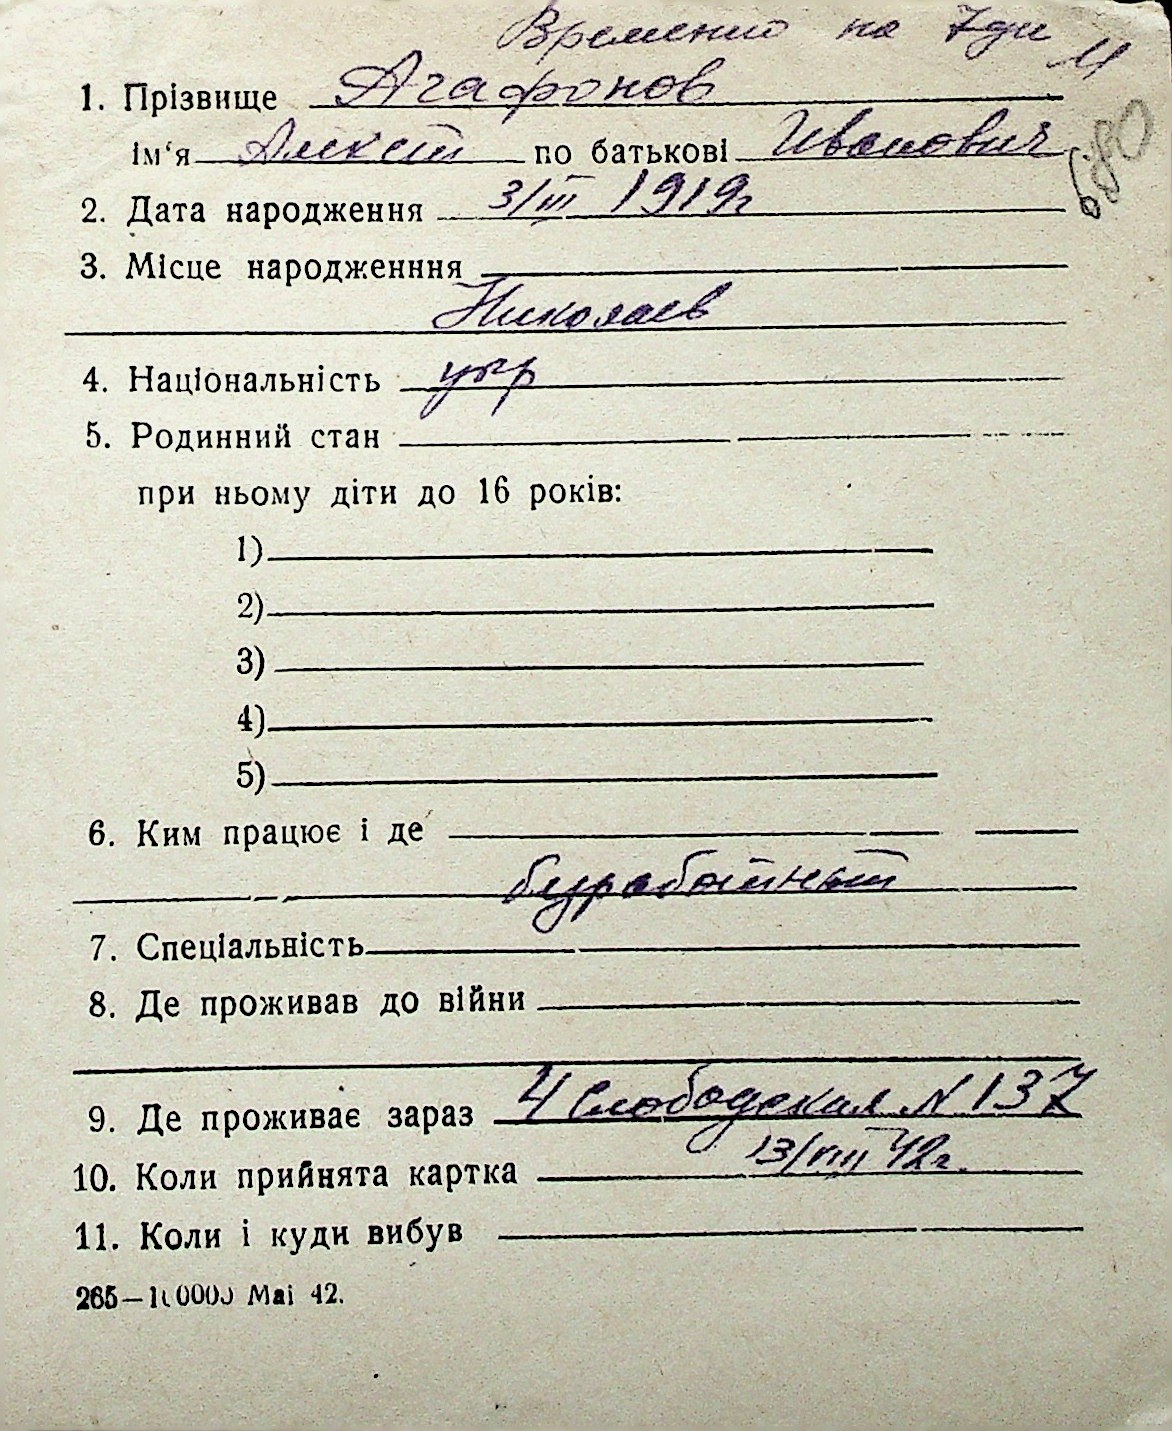 Временно на 7 дн
11
1. Прізвище Агафонов
ім‘я Алексей по батькові Иванович
680
2. Дата народження 3/III 1919г
3. Місце народженння
Николаев
4. Національність укр
5. Родинний стан
при ньому діти до 16 років:
1)
2)
3)
4)
5)
6. Ким працює і де
безработный
7. Спеціальність
8. Де проживав до війни
9. Де проживає зараз 4 Слободская N 137
10. Коли прийнята картка 13/VIII 42г.
11. Коли і куди вибув
265—10000 Маі 42.